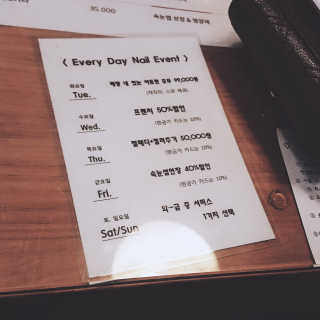 35,000
속눈썹 연장 & 영양제
( Every Day Nail Event )
화요일
Tue.
매장 내 있는 아트판 모두 99,000원
수요일
Wed.
프렌치 50%할인
(현금가 카드는 10%)
목요일
Thu.
(현금가 카드는 10%)
금요일
Fri.
속눈썹연장 40%할인
(현금가 카드는 10%)
토, 일요일
Sat/Sun
화-금 중 서비스
1가지 선택